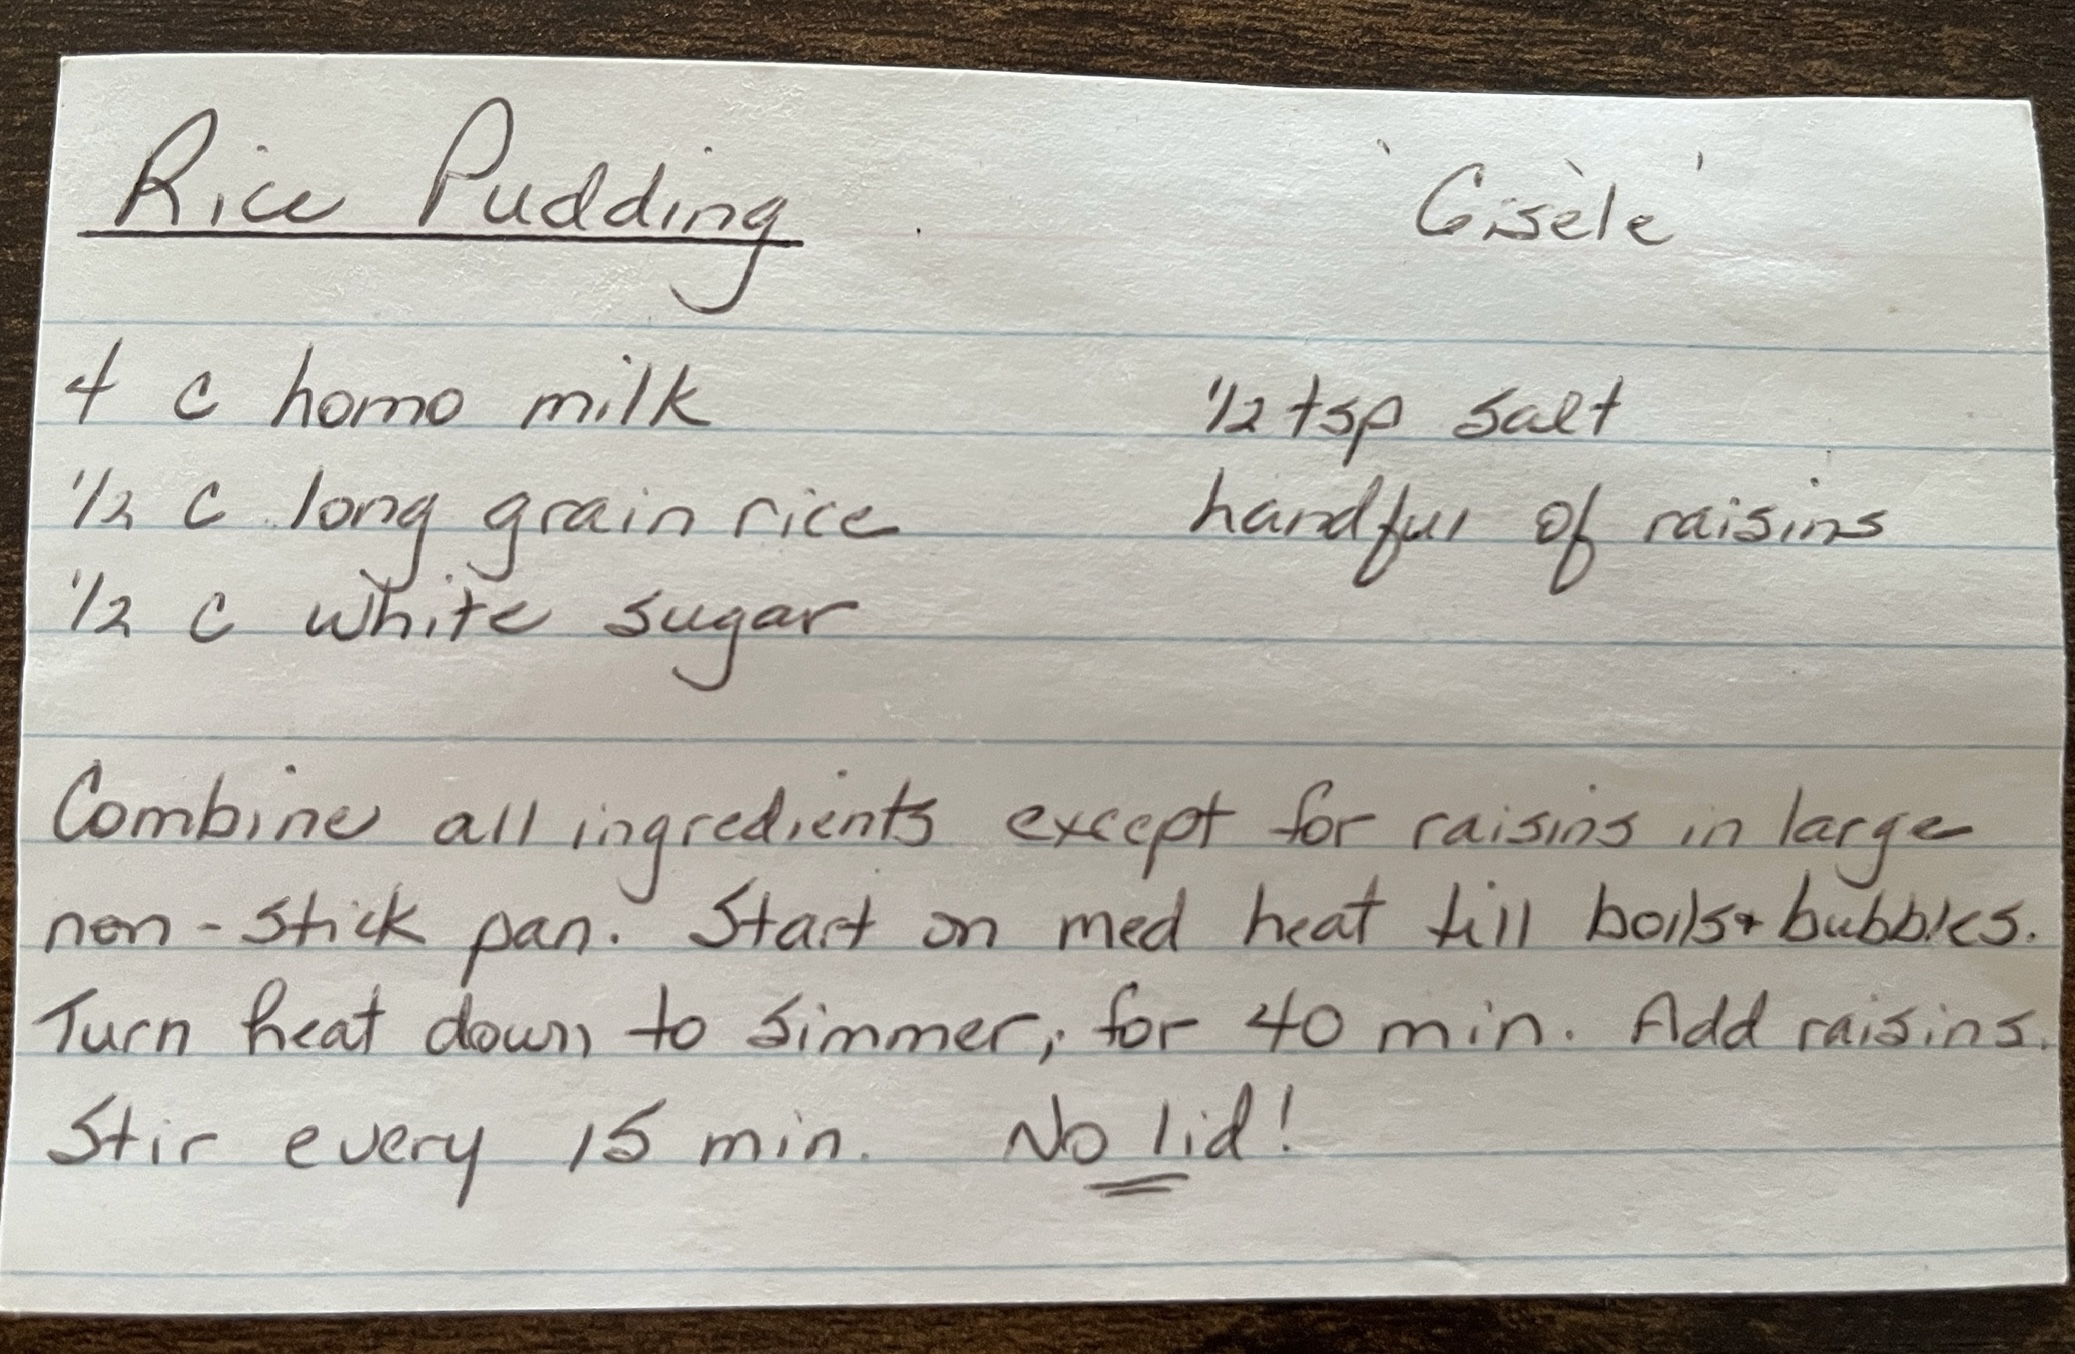 Rice Pudding 'Gisèle'
4 c homo milk
1/2 c long grain rice
1/2 c white sugar
1/2 tsp salt
handful of raisins
Combine all ingredients except for raisins in large
non-stick pan. Start on med heat till boils + bubbles.
Turn heat down to simmer, for 40 min. Add raisins.
Stir every 15 min. No lid!